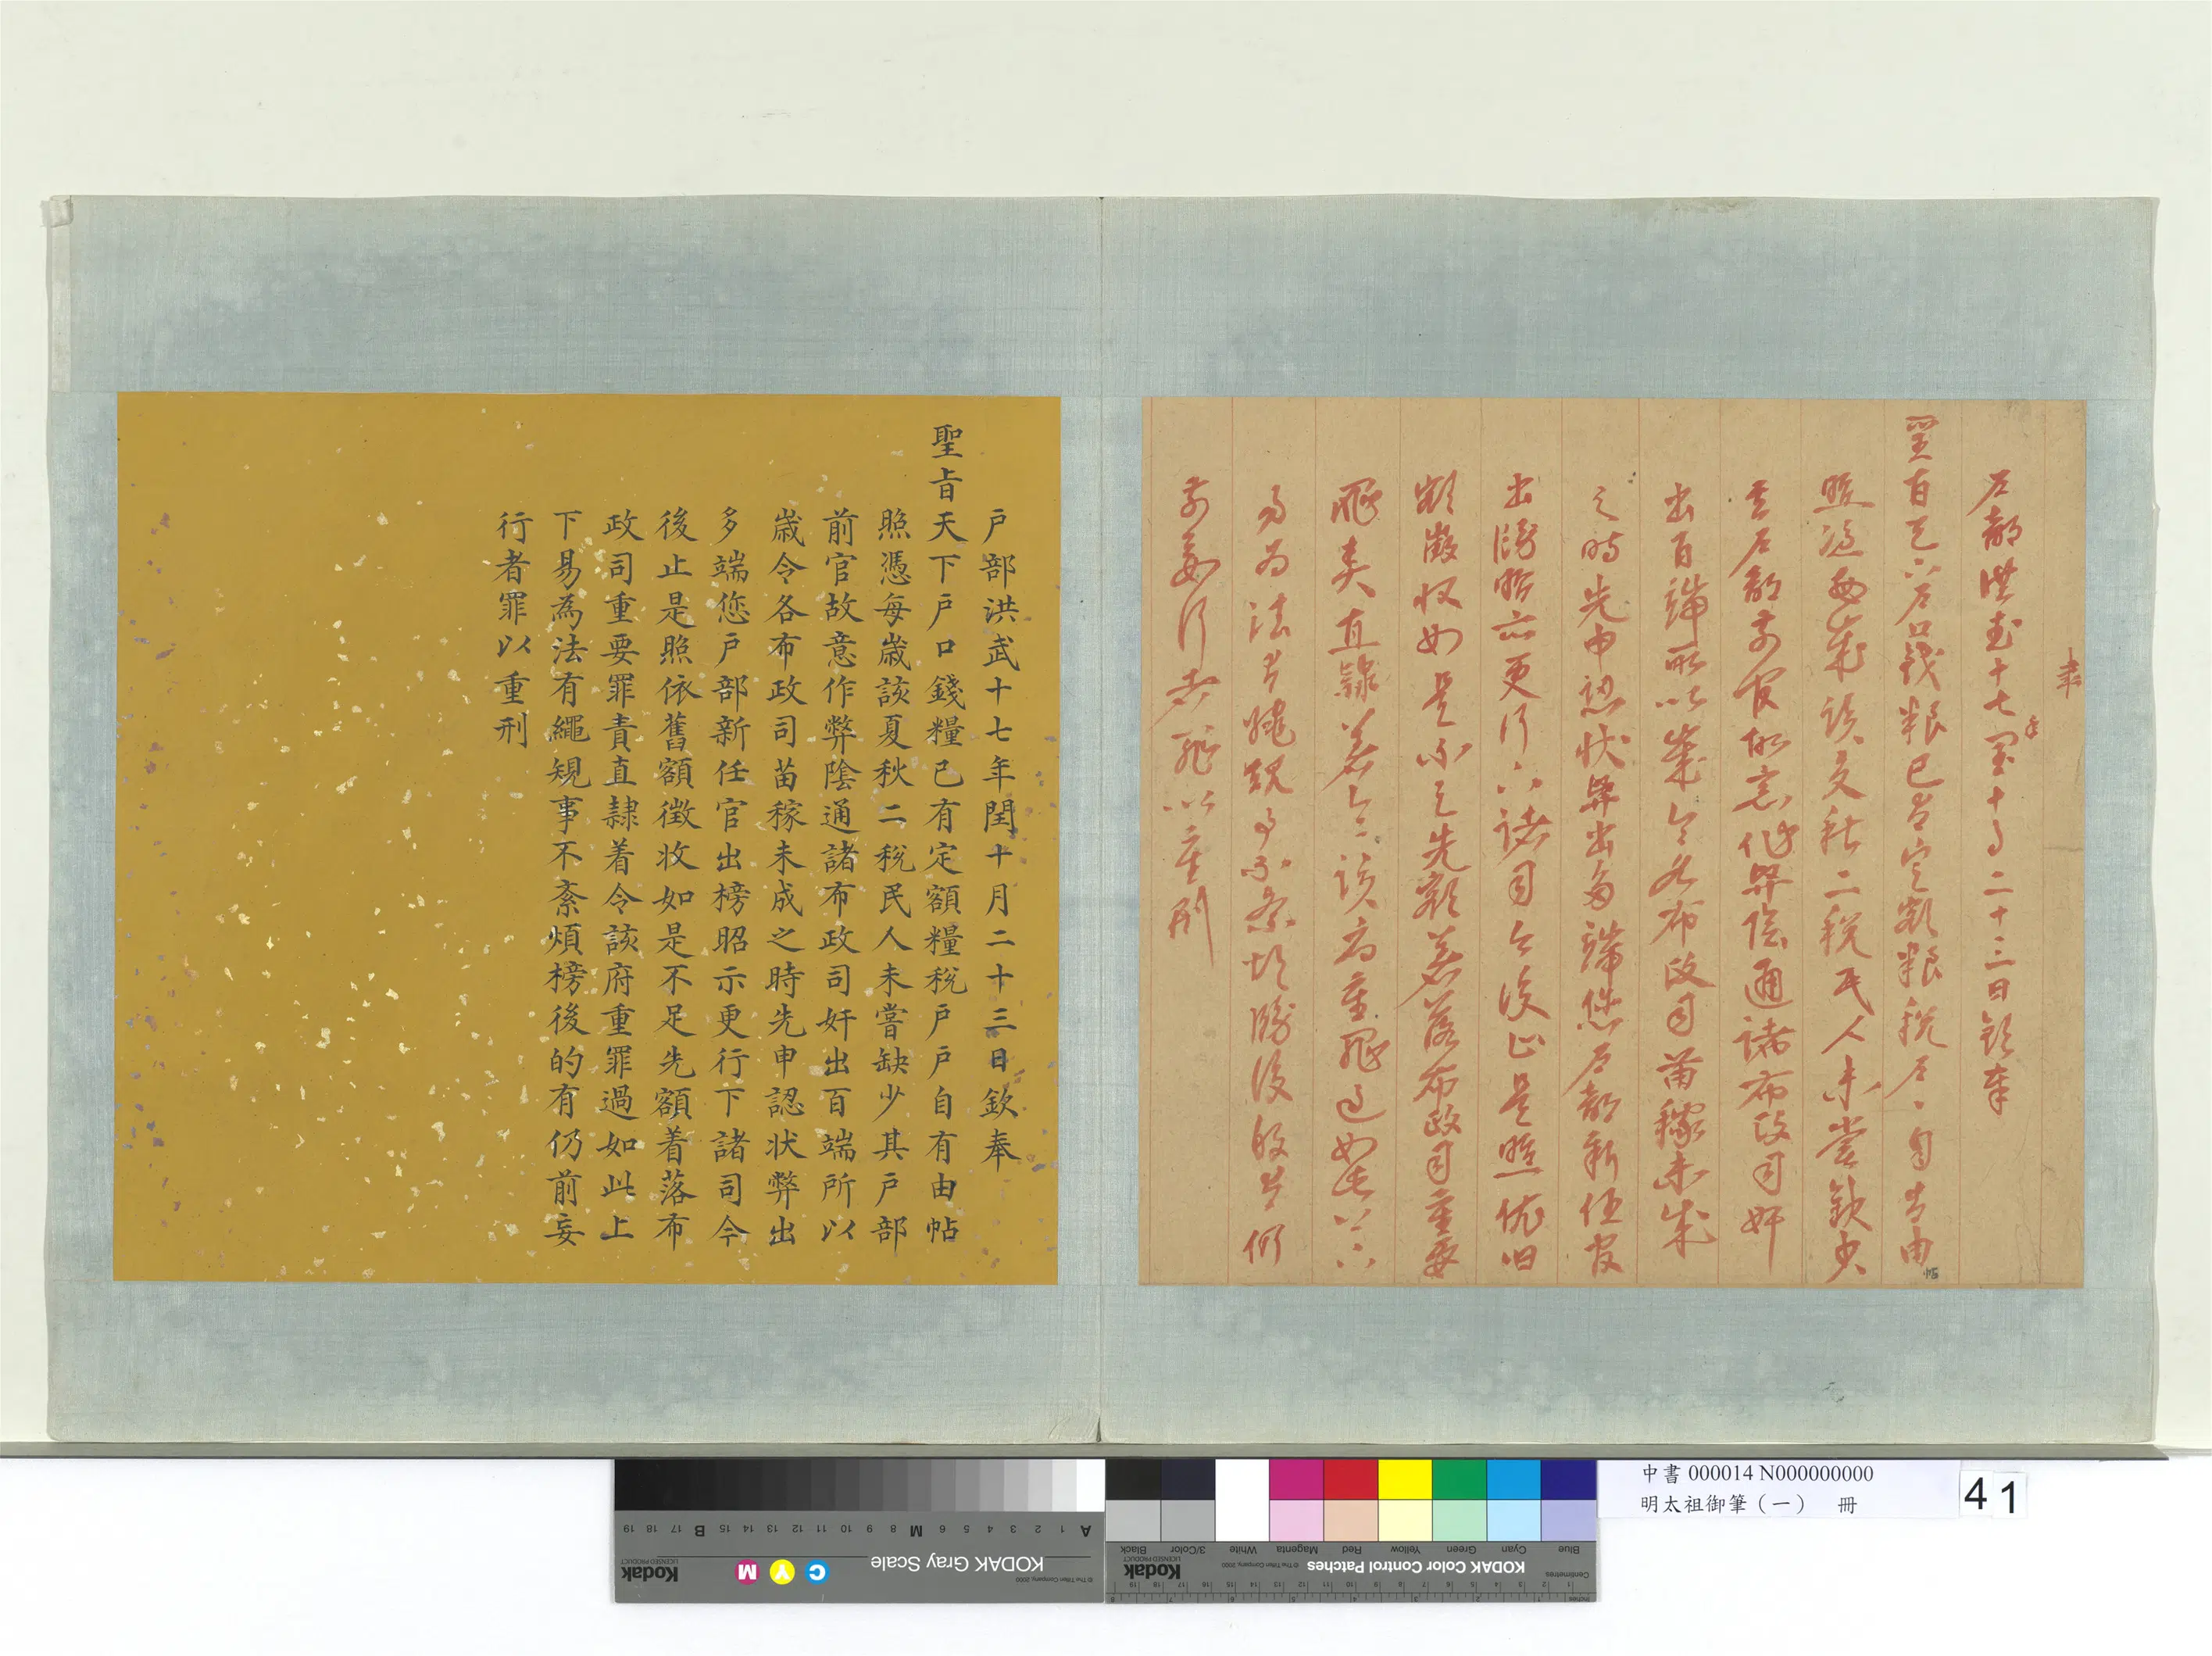 户部洪武十七年閏十月二十三日欽奉
聖旨天下户口錢粮已有定額粮稅户〻自有由帖
照憑每歲該夏秋二稅民人未嘗欠少
其户部前官故意作弊陰通諸布政司奸
出百端所以歲令各布政司苗稼未成
之時先申認狀弊出多端您户部新任官
出牓昭示更行下諸司今後止是照依旧
額徵收如是不足先額着落布政司重要
罪責直隸着令該府重罪過如此上下
易為法有繩規事不紊煩牓後的有仍
前妄行者罪以重刑
户部洪武十七年閏十月二十三日欽奉
聖旨天下户口錢糧已有定額糧稅户户自有由帖
照憑每歲該夏秋二稅民人未嘗缺少其户部
前官故意作弊陰通諸布政司奸出百端所以
歲令各布政司苗稼未成之時先申認狀弊出
多端您户部新任官出榜昭示更行下諸司今
後止是照依舊額徵收如是不足先額着落布
政司重要罪責直隸着令該府重罪過如此上
下易為法有繩規事不紊煩榜後的有仍前妄
行者罪以重刑
中書 000014 N000000000
明太祖御筆（一） 冊
41
KODAK Gray Scale
Kodak
LICENSED PRODUCT
© The Tiffen Company, 2000
A 1 2 3 4 5 6 M 8 9 10 11 12 13 14 15 B 17 18 19
C Y M
KODAK Color Control Patches
Kodak
LICENSED PRODUCT
© The Tiffen Company, 2000
Blue Cyan Green Yellow Red Magenta White 3/Color Black
Centimetres
Inches